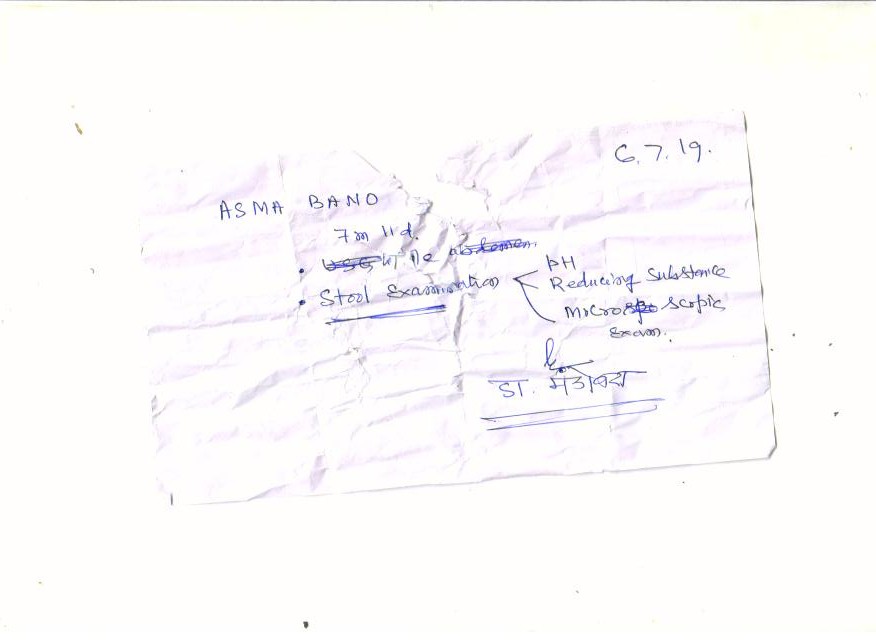 6.7.19.
ASMA BANO
7m 11d.
USG abdomen.
Stool Examination
pH
Reducing Substance
Microscopic
Exam.
डा.